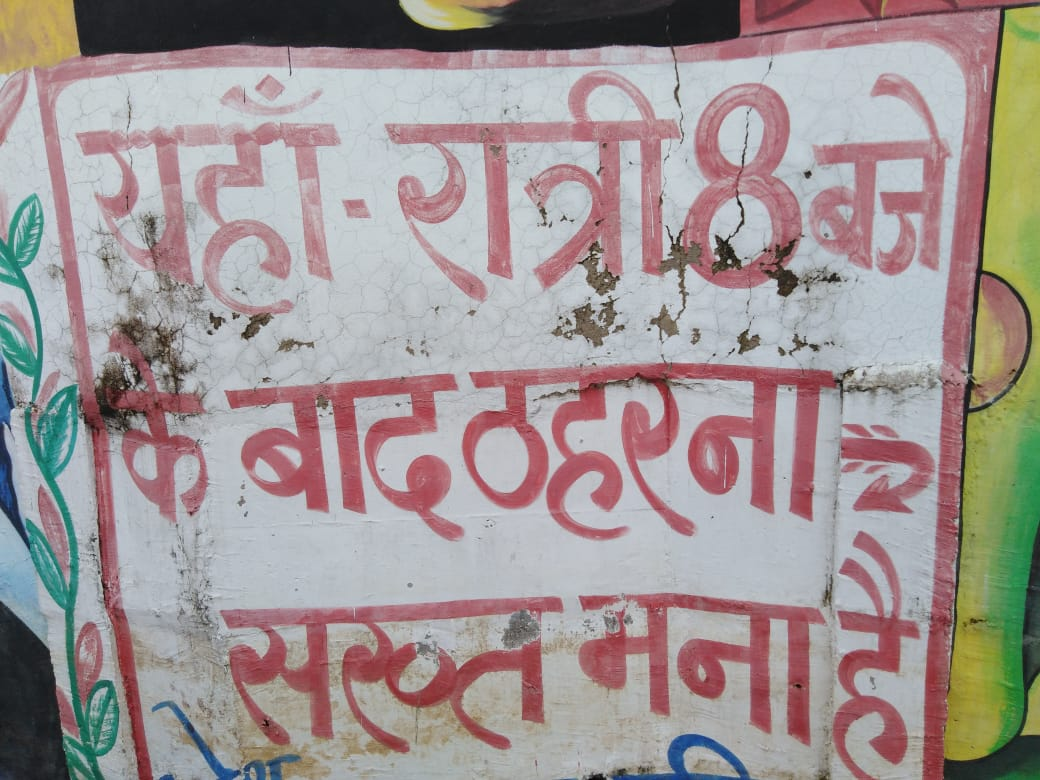 यहाँ - रात्री 8 बजे
के बाद ठहरना
सख्त मना है